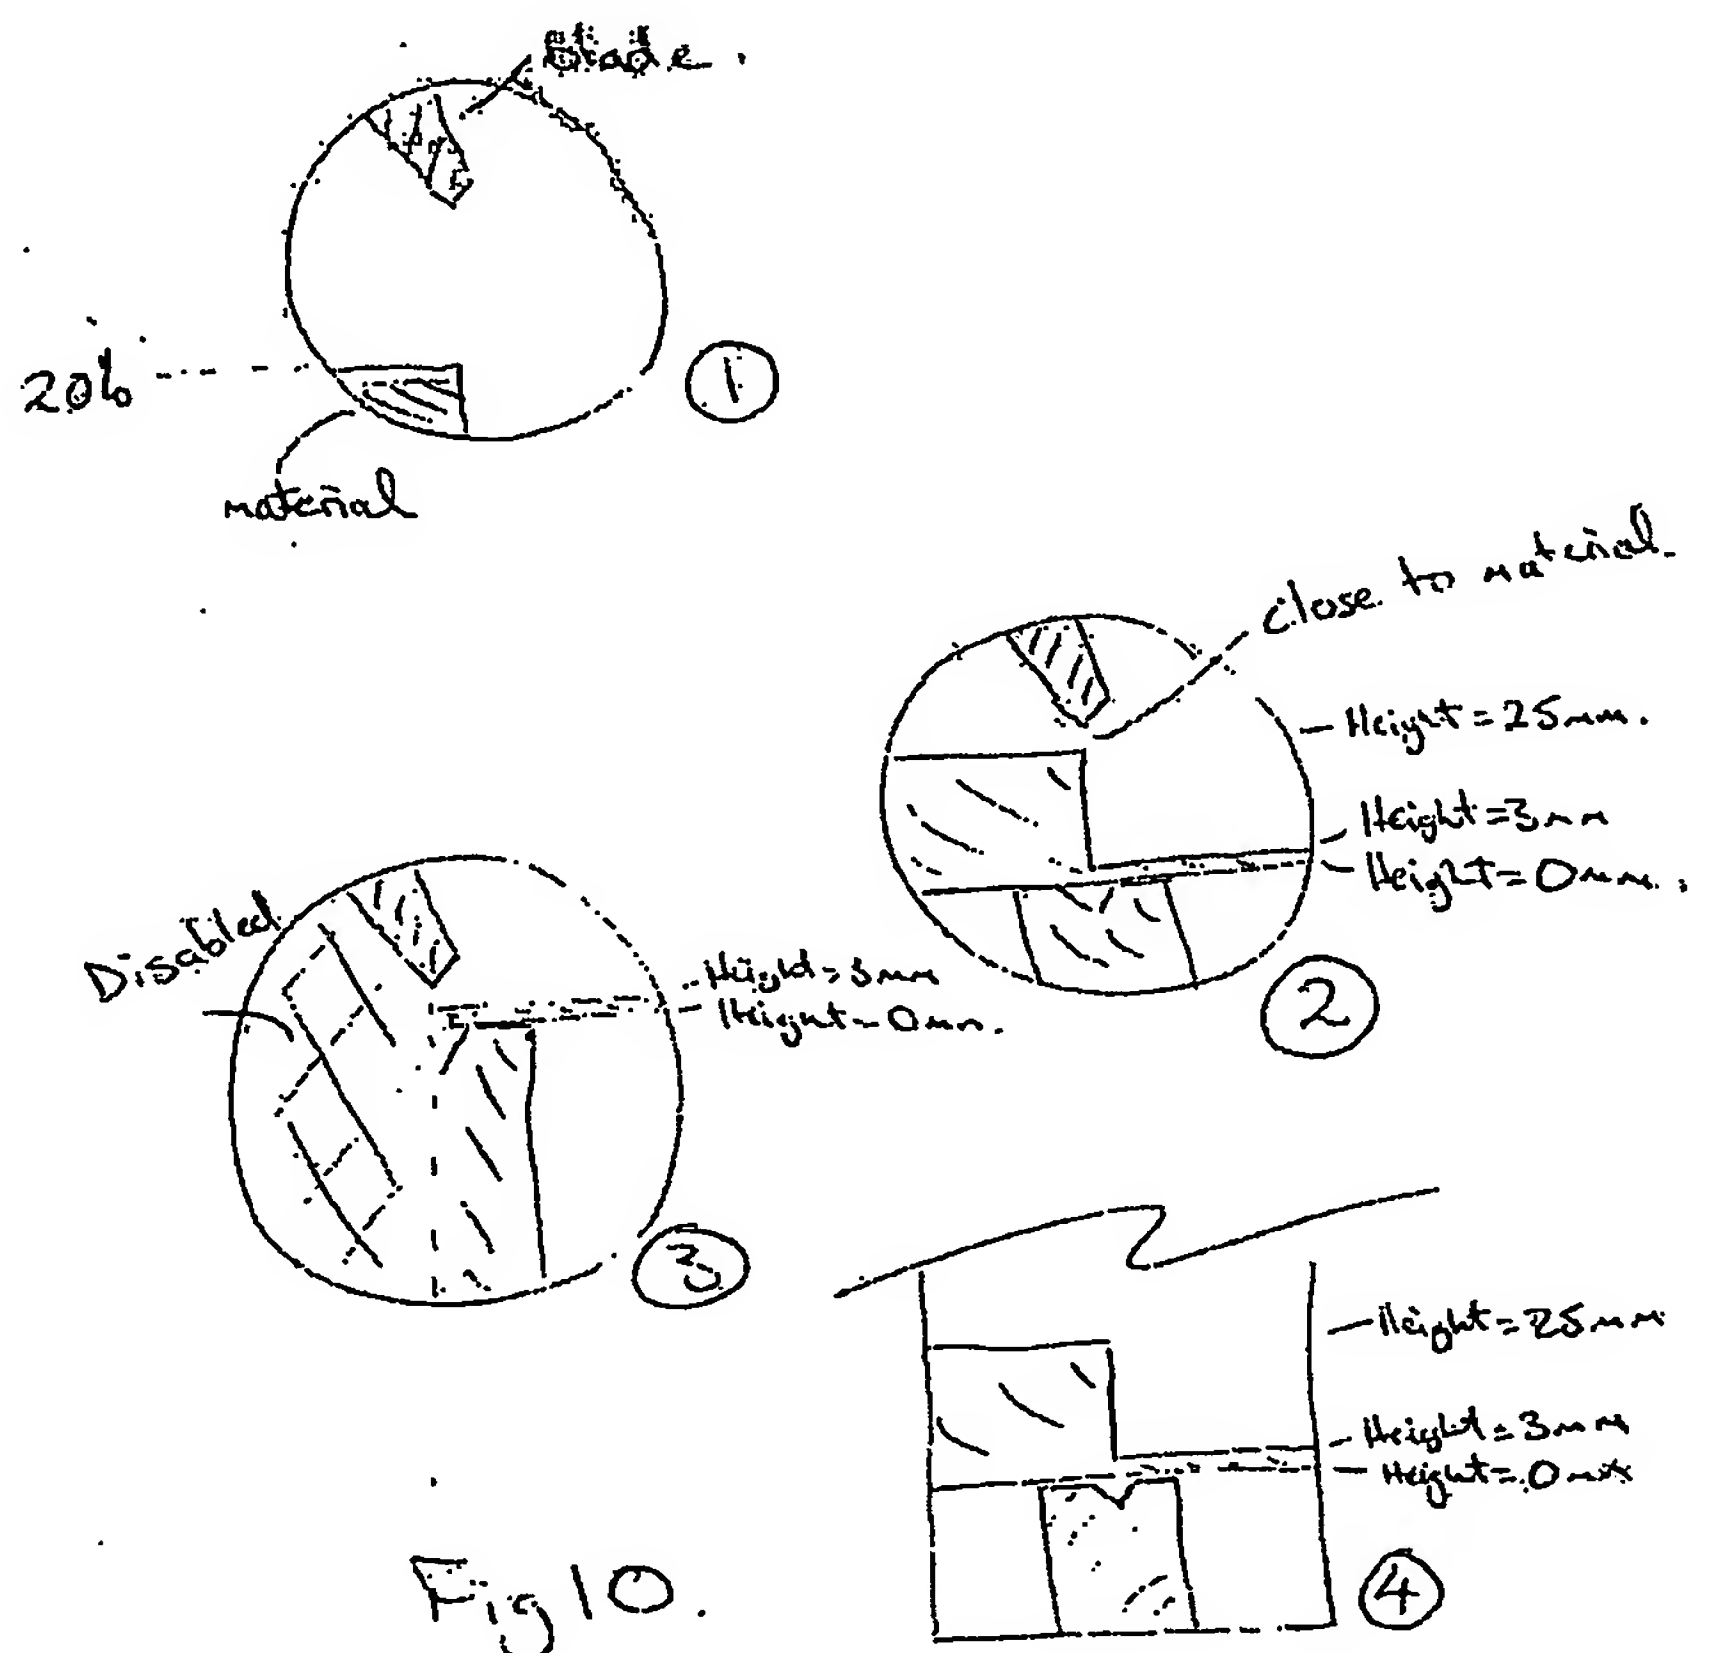 Blade.
20%
1
material
close to material.
Height = 25mm.
Height = 3mm
Height = 0mm.
2
Disabled
Height = 3mm
Height = 0mm.
3
Height = 25mm
Height = 3mm
Height = 0mm
4
Fig 10.